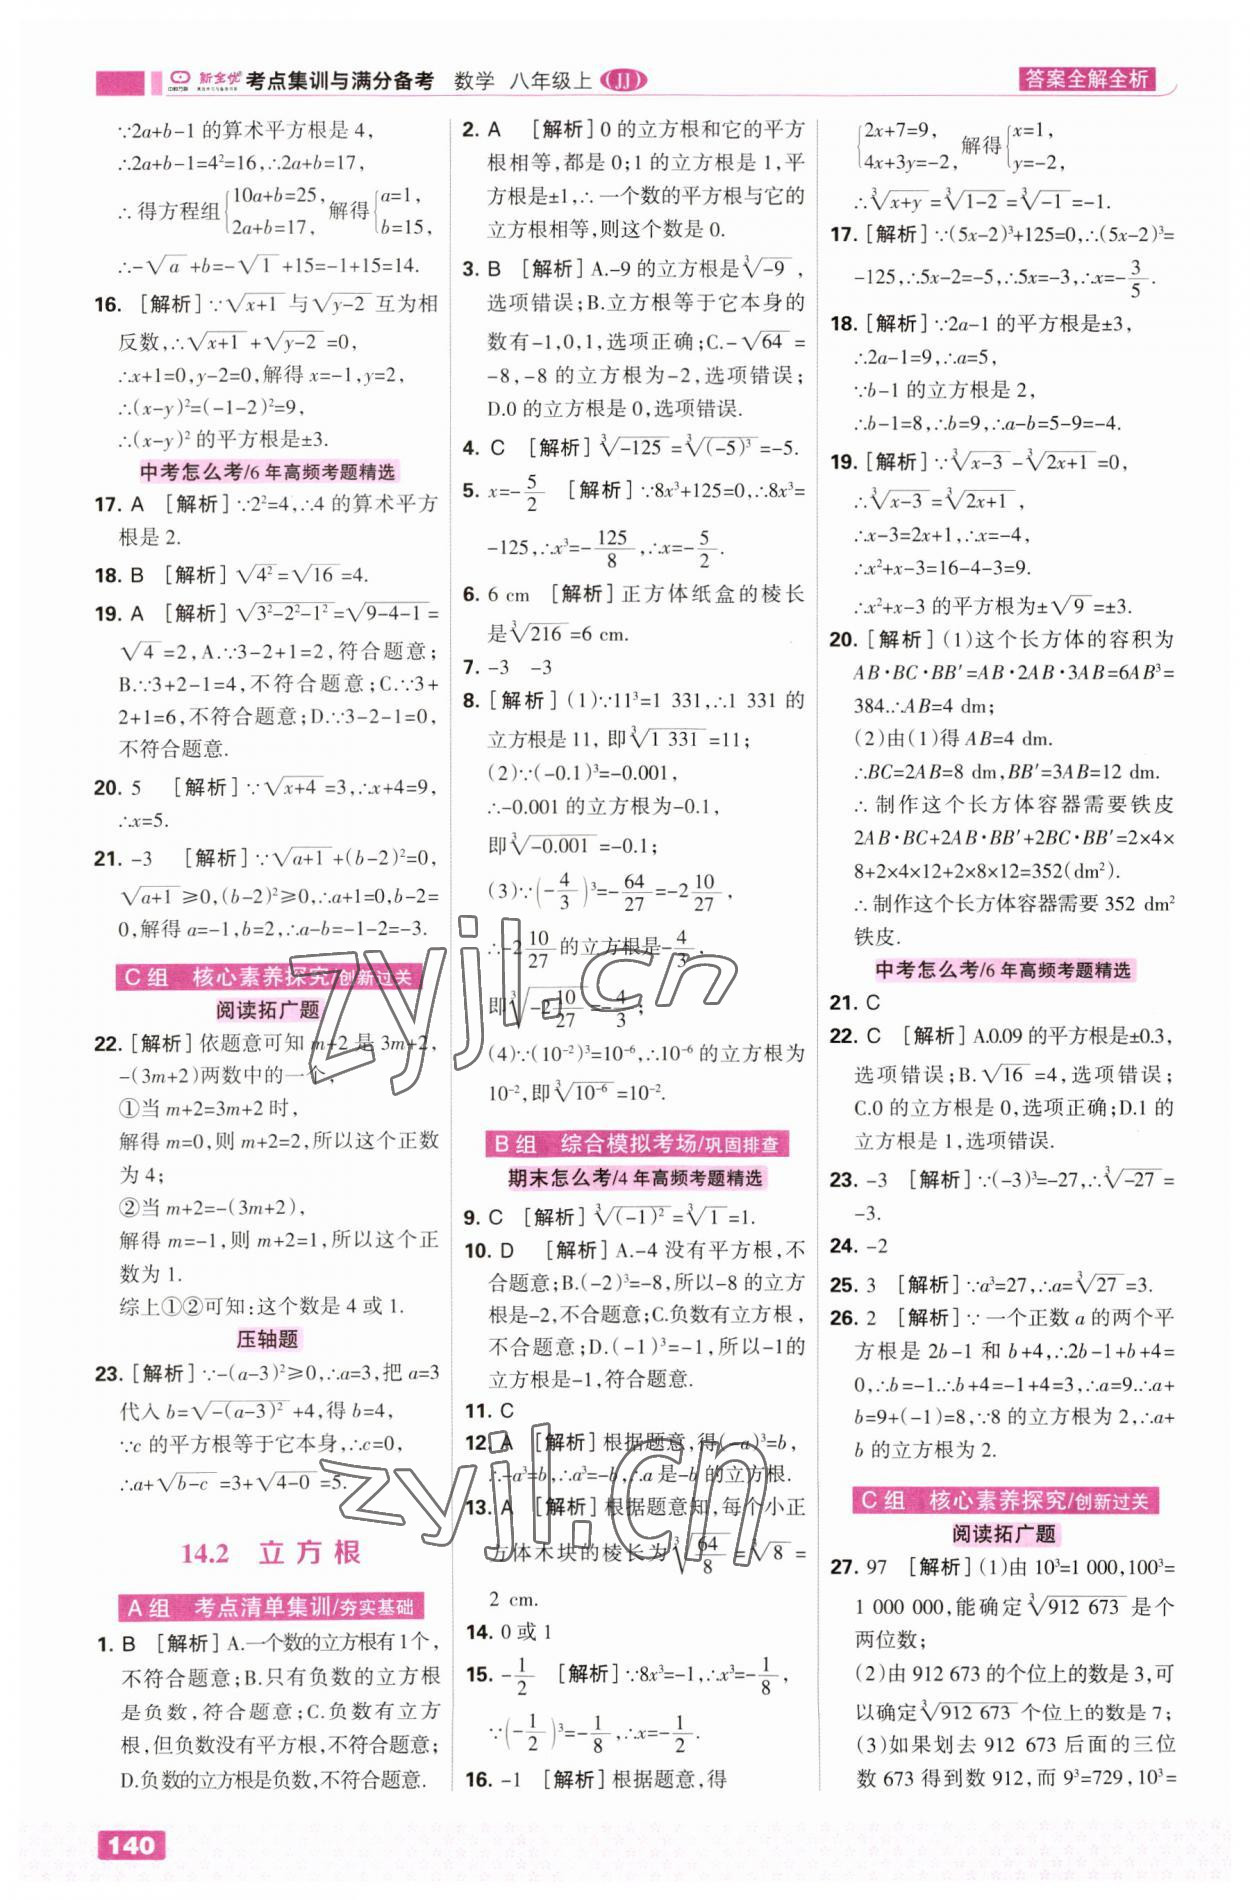 新全优 考点集训与满分备考 数学 八年级上 (JJ)
答案全解全析
∵2a+b-1 的算术平方根是 4,
∴2a+b-1=4²=16,∴2a+b=17,
∴得方程组{10a+b=25, 2a+b=17, 解得{a=1, b=15,
∴-√a+b=-√1+15=-1+15=14.
16. [解析]∵√(x+1) 与√(y-2) 互为相
反数,∴√(x+1)+√(y-2)=0,
∴x+1=0,y-2=0,解得 x=-1,y=2,
∴(x-y)²=(-1-2)²=9,
∴(x-y)² 的平方根是±3.
中考怎么考/6 年高频考题精选
17. A [解析]∵2²=4,∴4 的算术平方
根是 2.
18. B [解析]√4²=√16=4.
19. A [解析]√(3²-2²-1²)=√(9-4-1)=
√4=2,A.∵3-2+1=2,符合题意;
B.∵3+2-1=4,不符合题意;C.∵3+
2+1=6,不符合题意;D.∵3-2-1=0,
不符合题意.
20. 5 [解析]∵√(x+4)=3,∴x+4=9,
∴x=5.
21. -3 [解析]∵√(a+1)+(b-2)²=0,
√(a+1)≥0,(b-2)²≥0,∴a+1=0,b-2=
0,解得 a=-1,b=2,∴a-b=-1-2=-3.
C 组 核心素养探究/创新过关
阅读拓广题
22. [解析]依题意可知 m+2 是 3m+2,
-(3m+2)两数中的一个,
①当 m+2=3m+2 时,
解得 m=0,则 m+2=2,所以这个正数
为 4;
②当 m+2=-(3m+2),
解得 m=-1,则 m+2=1,所以这个正
数为 1.
综上①②可知:这个数是 4 或 1.
压轴题
23. [解析]∵-(a-3)²≥0,∴a=3,把 a=3
代入 b=√(-(a-3)²)+4,得 b=4,
∵c 的平方根等于它本身,∴c=0,
∴a+√(b-c)=3+√(4-0)=5.
14.2 立方根
A 组 考点清单集训/夯实基础
1. B [解析]A.一个数的立方根有1个,
不符合题意;B.只有负数的立方根
是负数,符合题意;C.负数有立方
根,但负数没有平方根,不符合题意;
D.负数的立方根是负数,不符合题意.
2. A [解析]0 的立方根和它的平方
根相等,都是 0;1 的立方根是 1,平
方根是±1,∴一个数的平方根与它的
立方根相等,则这个数是 0.
3. B [解析]A.-9 的立方根是∛(-9),
选项错误;B.立方根等于它本身的
数有-1,0,1,选项正确;C.-√64=
-8,-8 的立方根为-2,选项错误;
D.0 的立方根是 0,选项错误.
4. C [解析]∛(-125)=∛((-5)³)=-5.
5. x=-5/2 [解析]∵8x³+125=0,∴8x³=
-125,∴x³=-125/8,∴x=-5/2.
6. 6 cm [解析]正方体纸盒的棱长
是∛216=6 cm.
7. -3 -3
8. [解析](1)∵11³=1 331,∴1 331 的
立方根是 11, 即∛(1 331)=11;
(2)∵(-0.1)³=-0.001,
∴-0.001 的立方根为-0.1,
即∛(-0.001)=-0.1;
(3)∵(-4/3)³=-64/27=-2 10/27,
∴-2 10/27 的立方根是-4/3,
即∛(-2 10/27)=-4/3;
(4)∵(10⁻²)³=10⁻⁶,∴10⁻⁶ 的立方根为
10⁻²,即∛(10⁻⁶)=10⁻².
B 组 综合模拟考场/巩固排查
期末怎么考/4 年高频考题精选
9. C [解析]∛((-1)²)=∛1=1.
10. D [解析]A.-4 没有平方根,不
合题意;B.(-2)³=-8,所以-8 的立方
根是-2,不合题意;C.负数有立方根,
不合题意;D.(-1)³=-1,所以-1的
立方根是-1,符合题意.
11. C
12. A [解析]根据题意,得(-a)³=b,
∴-a³=b,∴a³=-b,∴a 是-b 的立方根.
13. A [解析]根据题意知,每个小正
方体木块的棱长为∛(64/8)=∛8=
2 cm.
14. 0 或 1
15. -1/2 [解析]∵8x³=-1,∴x³=-1/8,
∵(-1/2)³=-1/8,∴x=-1/2.
16. -1 [解析]根据题意,得
{2x+7=9, 4x+3y=-2, 解得{x=1, y=-2,
∴∛(x+y)=∛(1-2)=∛(-1)=-1.
17. [解析]∵(5x-2)³+125=0,∴(5x-2)³=
-125,∴5x-2=-5,∴5x=-3,∴x=-3/5.
18. [解析]∵2a-1 的平方根是±3,
∴2a-1=9,∴a=5,
∵b-1 的立方根是 2,
∴b-1=8,∴b=9,∴a-b=5-9=-4.
19. [解析]∵∛(x-3)-∛(2x+1)=0,
∴∛(x-3)=∛(2x+1),
∴x-3=2x+1,∴x=-4,
∴x²+x-3=16-4-3=9.
∴x²+x-3 的平方根为±√9=±3.
20. [解析](1)这个长方体的容积为
AB·BC·BB′=AB·2AB·3AB=6AB³=
384.∴AB=4 dm;
(2)由(1)得 AB=4 dm.
∴BC=2AB=8 dm,BB′=3AB=12 dm.
∴制作这个长方体容器需要铁皮
2AB·BC+2AB·BB′+2BC·BB′=2×4×
8+2×4×12+2×8×12=352(dm²).
∴制作这个长方体容器需要 352 dm²
铁皮.
中考怎么考/6 年高频考题精选
21. C
22. C [解析]A.0.09 的平方根是±0.3,
选项错误;B.√16=4,选项错误;
C.0 的立方根是 0,选项正确;D.1 的
立方根是 1,选项错误.
23. -3 [解析]∵(-3)³=-27,∴∛(-27)=
-3.
24. -2
25. 3 [解析]∵a³=27,∴a=∛27=3.
26. 2 [解析]∵一个正数 a 的两个平
方根是 2b-1 和 b+4,∴2b-1+b+4=
0,∴b=-1.∴b+4=-1+4=3,∴a=9.∴a+
b=9+(-1)=8,∵8 的立方根为 2,∴a+
b 的立方根为 2.
C 组 核心素养探究/创新过关
阅读拓广题
27. 97 [解析](1)由 10³=1 000,100³=
1 000 000,能确定∛(912 673)是个
两位数;
(2)由 912 673 的个位上的数是 3,可
以确定∛(912 673)个位上的数是 7;
(3)如果划去 912 673 后面的三位
数 673 得到数 912,而 9³=729,10³=
140
zyjl.cn
zyjl.cn